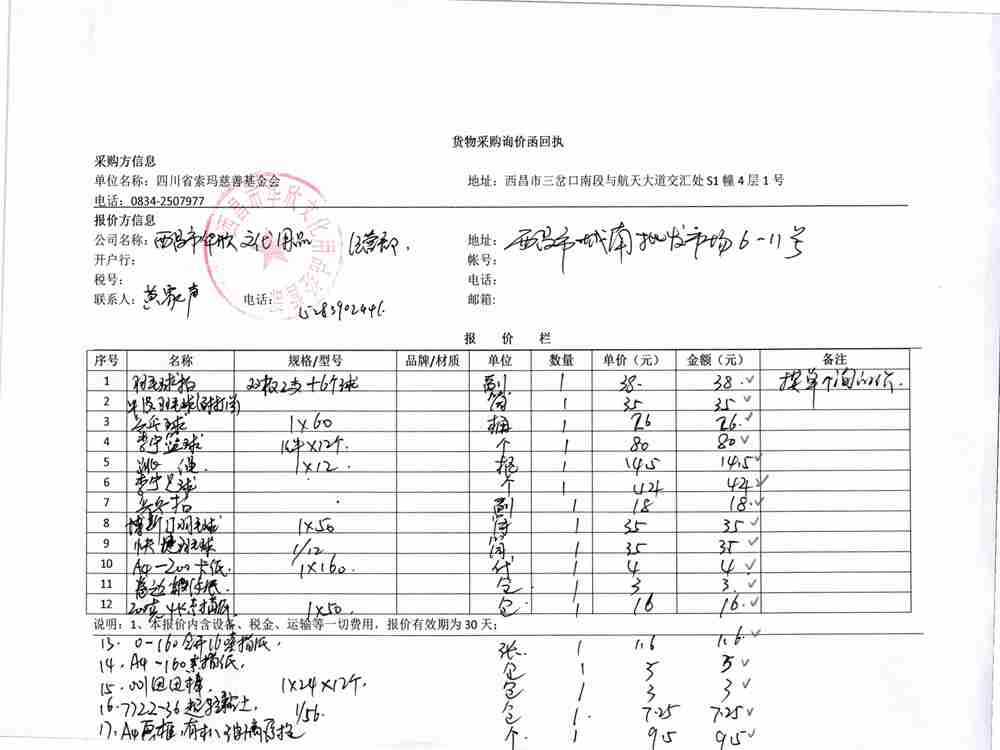 货物采购询价函回执
采购方信息
单位名称：四川省索玛慈善基金会 地址：西昌市三岔口南段与航天大道交汇处 S1 幢 4 层 1 号
电话：0834-2507977
报价方信息
公司名称：西昌市华欣文化用品 经营部. 地址：西昌市城南批发市场6-11号
开户行： 帐号：
税号： 电话：
联系人：黄家声 电话：15283902446. 邮箱：
西昌市华欣文化用品经营部
报 价 栏
序号 名称 规格/型号 品牌/材质 单位 数量 单价（元） 金额（元） 备注
1 羽毛球拍 2支+6个球 副 1 38. 38. 按单个询的价.
2 羽毛球 筒 1 35 35
3 乒乓球 1×60 桶 1 26 26.
4 李宁篮球 ×12个. 个 1 80 80
5 跳绳. 1×12. 根 1 14.5 14.5
6 李宁足球 个 1 42 42
7 乒乓拍 副 1 18 18.
8 羽毛球 1×50 筒 1 35 35
9 快 球 1/12 筒 1 35 35
10 A4-200卡纸. 1×160. 代 1 4 4
11 纸. 包. 1 3 3.
12 200克4K素描纸 1×50. 包. 1 16 16.
说明：1、本报价内含设备、税金、运输等一切费用，报价有效期为 30 天；
13. 0-160全开16素描纸. 张. 1 1.6 1.6
14. A4-160素描纸. 包 1 5 5
15. 001田田棒. 1×24×12个. 包 1 3 3
16. 7722-36超轻黏土. 1/56. 包 1. 7.25 7.25
17. A4画框, 有机玻璃 个. 1 9.5 9.5